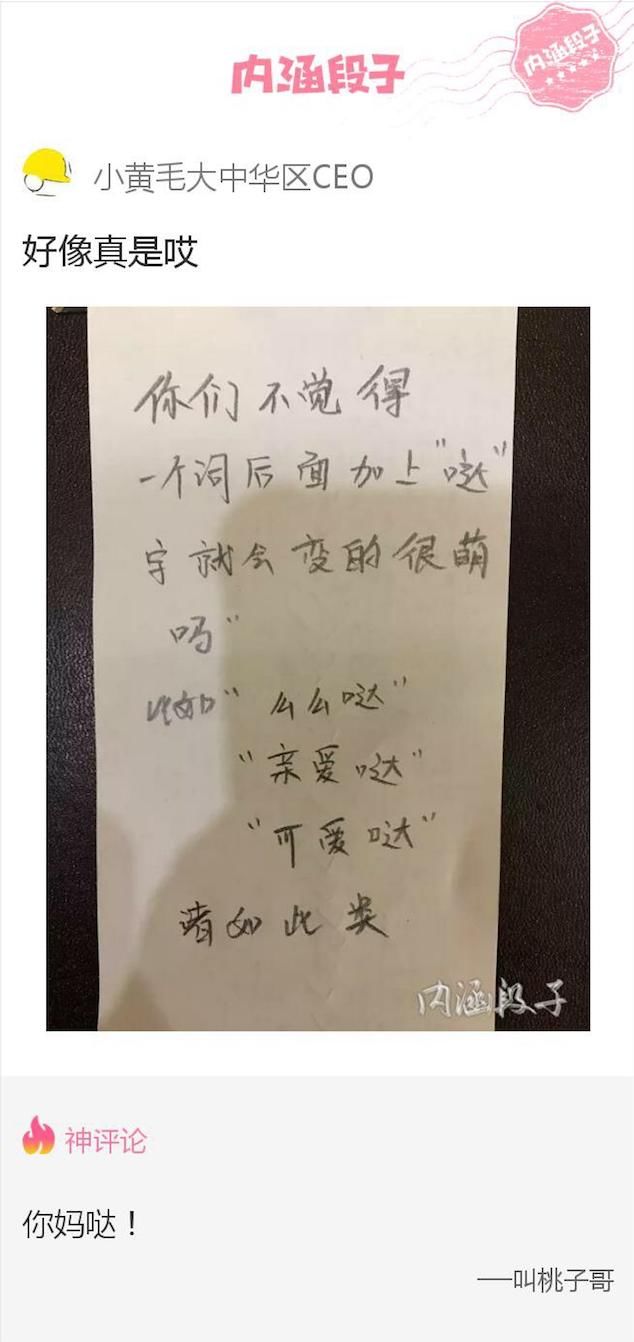 内涵段子
内涵段子
小黄毛大中华区CEO
好像真是哎
你们不觉得
一个词后面加上"哒"
字就会变的很萌
吗"
比如"么么哒"
"亲爱哒"
"可爱哒"
诸如此类
内涵段子
神评论
你妈哒！
──叫桃子哥